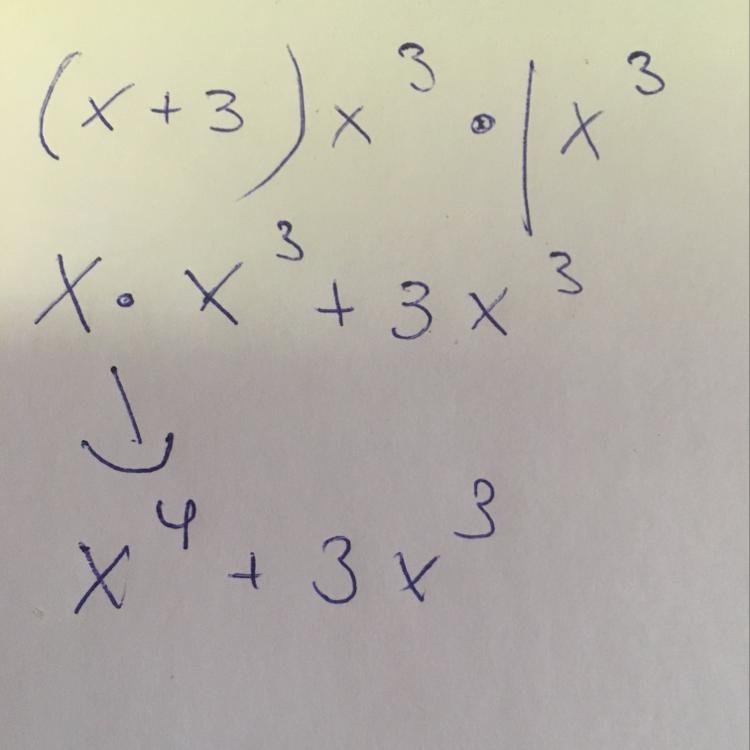 (x+3)x³ · | x³
x · x³ + 3x³
x⁴ + 3x³